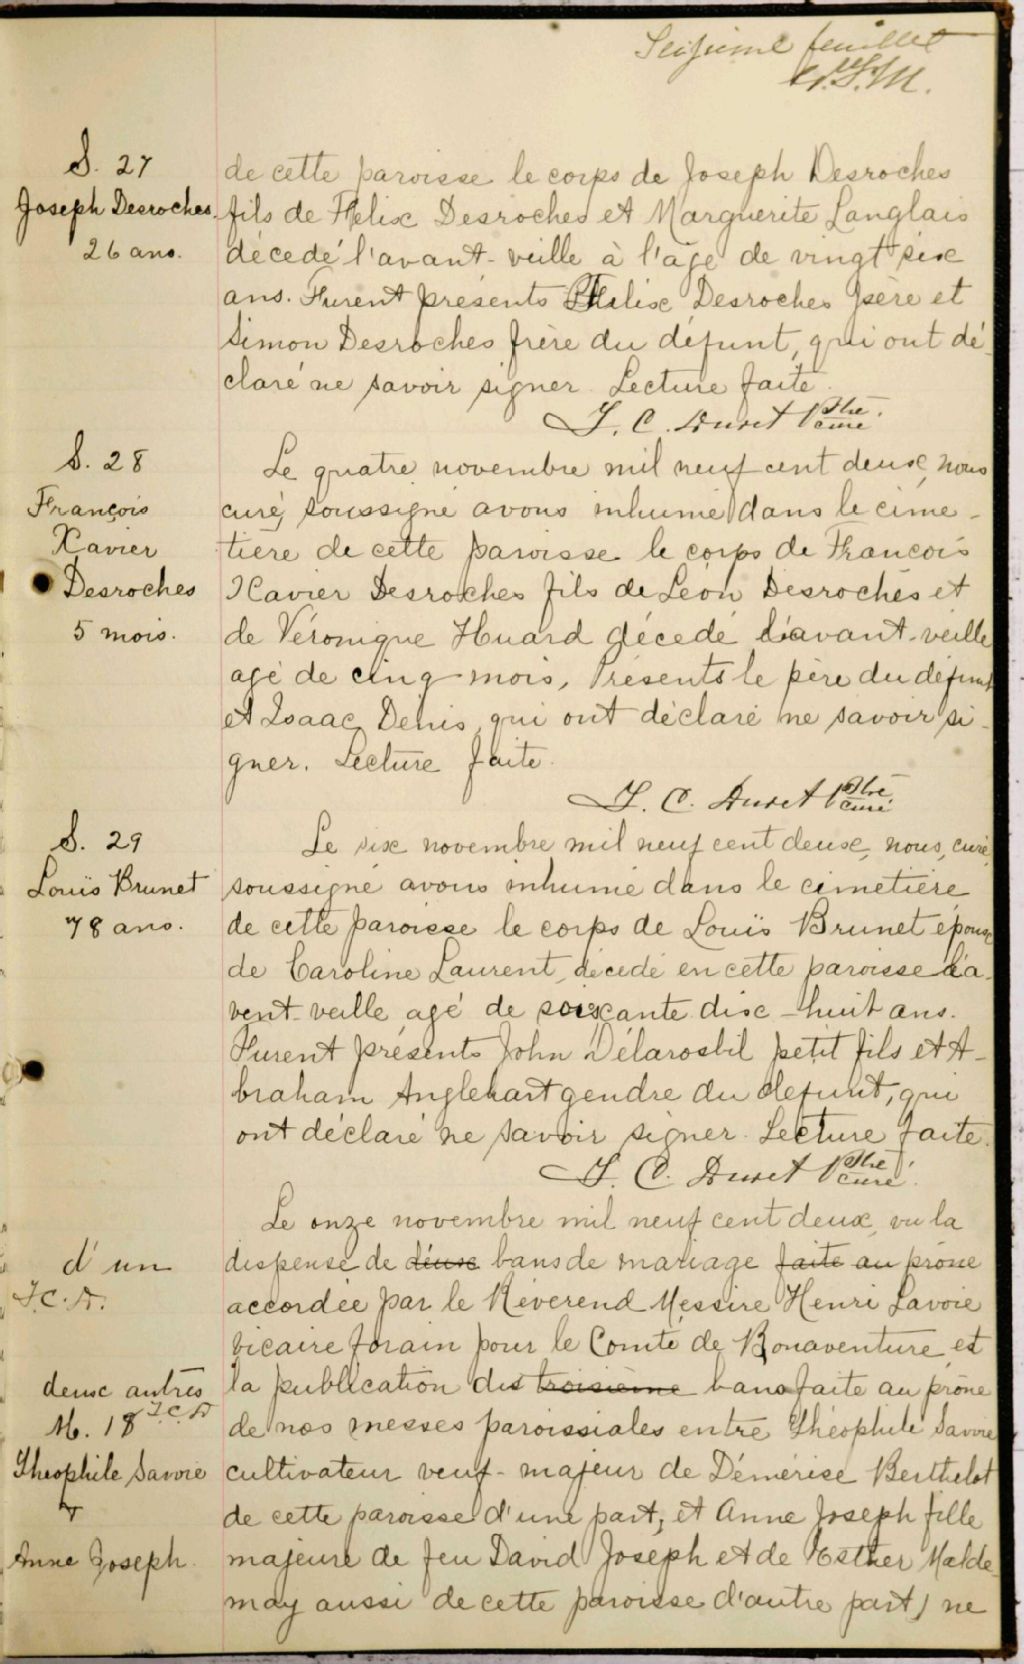 Seizième feuillet
S. 27
Joseph Desroches
26 ans.
de cette paroisse le corps de Joseph Desroches
fils de Félix Desroches et Marguerite Langlais
décedé l'avant-veille à l'age de vingt six
ans. Furent présents Félix Desroches père et
Simon Desroches frère du défunt, qui ont dé-
claré ne savoir signer. Lecture faite.
J. C. Duret Ptre curé
S. 28
François
Xavier
Desroches
5 mois.
Le quatre novembre mil neuf cent deux, nous
curé, soussigné avons inhumé dans le cime-
tière de cette paroisse le corps de François
Xavier Desroches fils de Léon Desroches et
de Véronique Huard décedé l'avant-veille
agé de cinq mois, Présents le père du défunt
et Isaac Denis, qui ont déclaré ne savoir si-
gner. Lecture faite.
J. C. Duret Ptre curé
S. 29
Louïs Brunet
78 ans.
Le six novembre mil neuf cent deux, nous, curé,
soussigné avons inhumé dans le cimetière
de cette paroisse le corps de Louïs Brunet époux
de Caroline Laurent, décedé en cette paroisse l'a-
vent-veille, agé de soixcante dix-huit ans.
Furent présents John Délarosbil petit fils et A-
braham Anglehart gendre du defunt, qui
ont déclaré ne savoir signer. Lecture faite.
J. C. Duret Ptre curé.
Le onze novembre mil neuf cent deux, vu la
d'un
dispense de deux bans de mariage faite au prône
J.C.D.
accordée par le Révérend Messire Henri Lavoie
vicaire forain pour le Comté de Bonaventure, et
deux autres
la publication des troisième bans faite au prône
J.C.D
M. 18
de nos messes paroissiales entre Théophile Savoie
Théophile Savoie
&
Anne Joseph.
cultivateur veuf-majeur de Démérise Berthelot
de cette paroisse d'une part, et Anne Joseph fille
majeure de feu David Joseph et de Esther Malde-
may aussi de cette paroisse d'autre part, ne